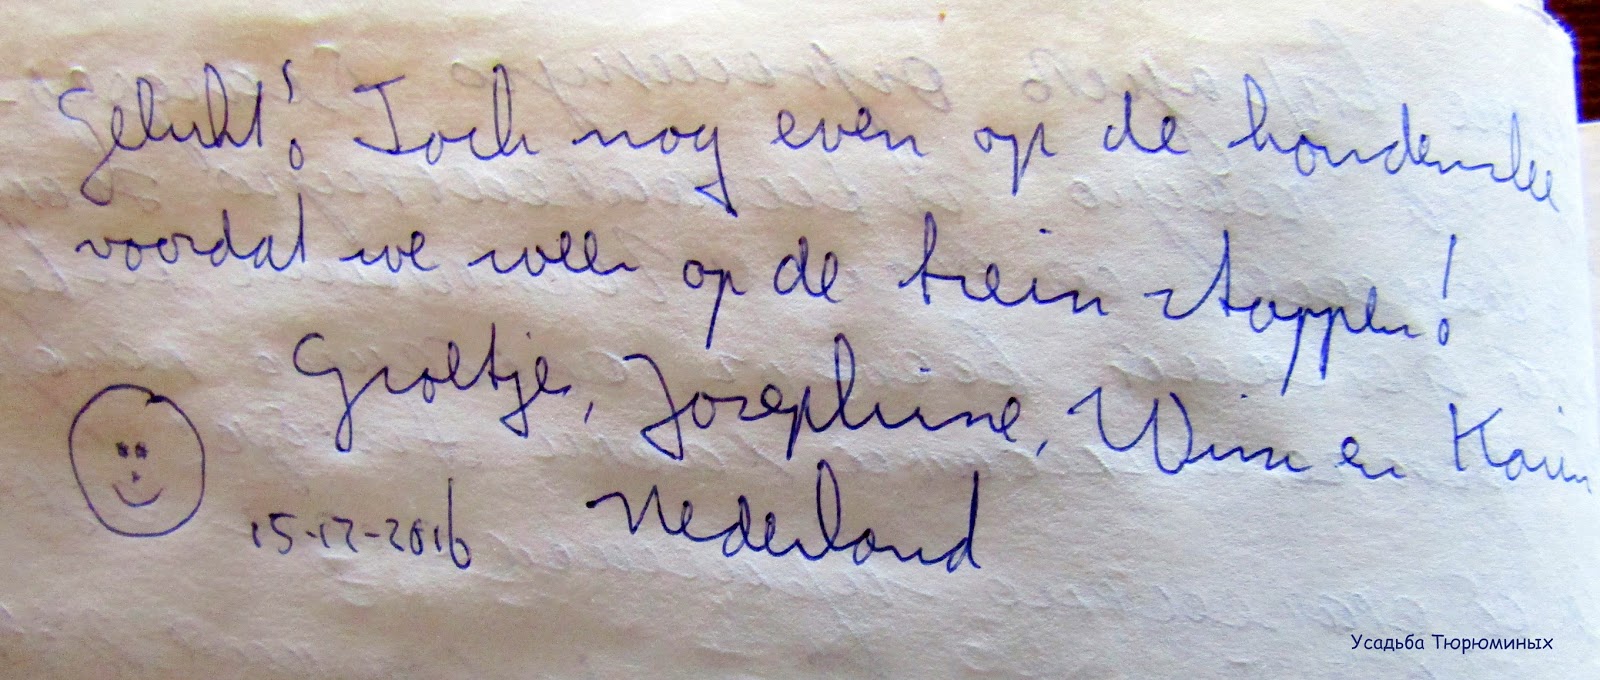 Gelukt! Toch nog even op de hondenslee
voordat we weer op de trein stappen!
Groetjes, Josephine, Wim en Karin
15-12-2016 Nederland
Усадьба Тюрюминых